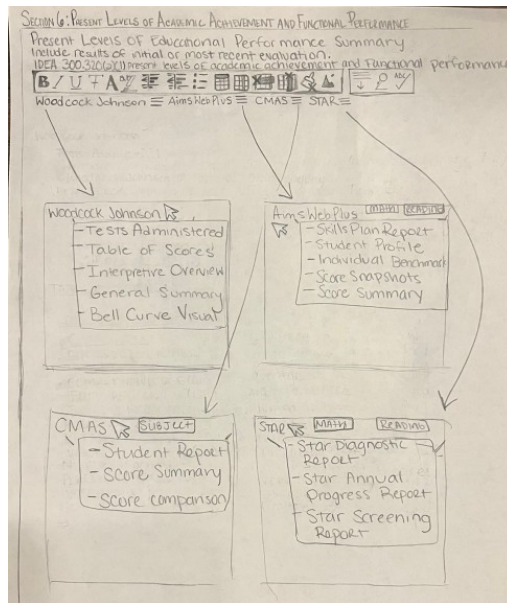 SECTION 6: PRESENT LEVELS OF ACADEMIC ACHIEVEMENT AND FUNCTIONAL PERFORMANCE
Present Levels of Educational Performance Summary
Include results of initial or most recent evaluation.
IDEA 300.320(a)(1) present levels of academic achievement and functional performance
B I U T A
ABC
Woodcock Johnson AimsWebPlus CMAS STAR
Woodcock Johnson
- Tests Administered
- Table of Scores
- Interpretive Overview
- General Summary
- Bell Curve Visual
AimsWebPlus MATH READING
- Skills Plan Report
- Student Profile
- Individual Benchmark
- Score Snapshots
- Score Summary
CMAS SUBJECT
- Student Report
- Score Summary
- Score comparison
STAR MATH READING
- Star Diagnostic
Report
- Star Annual
Progress Report
- Star Screening
Report